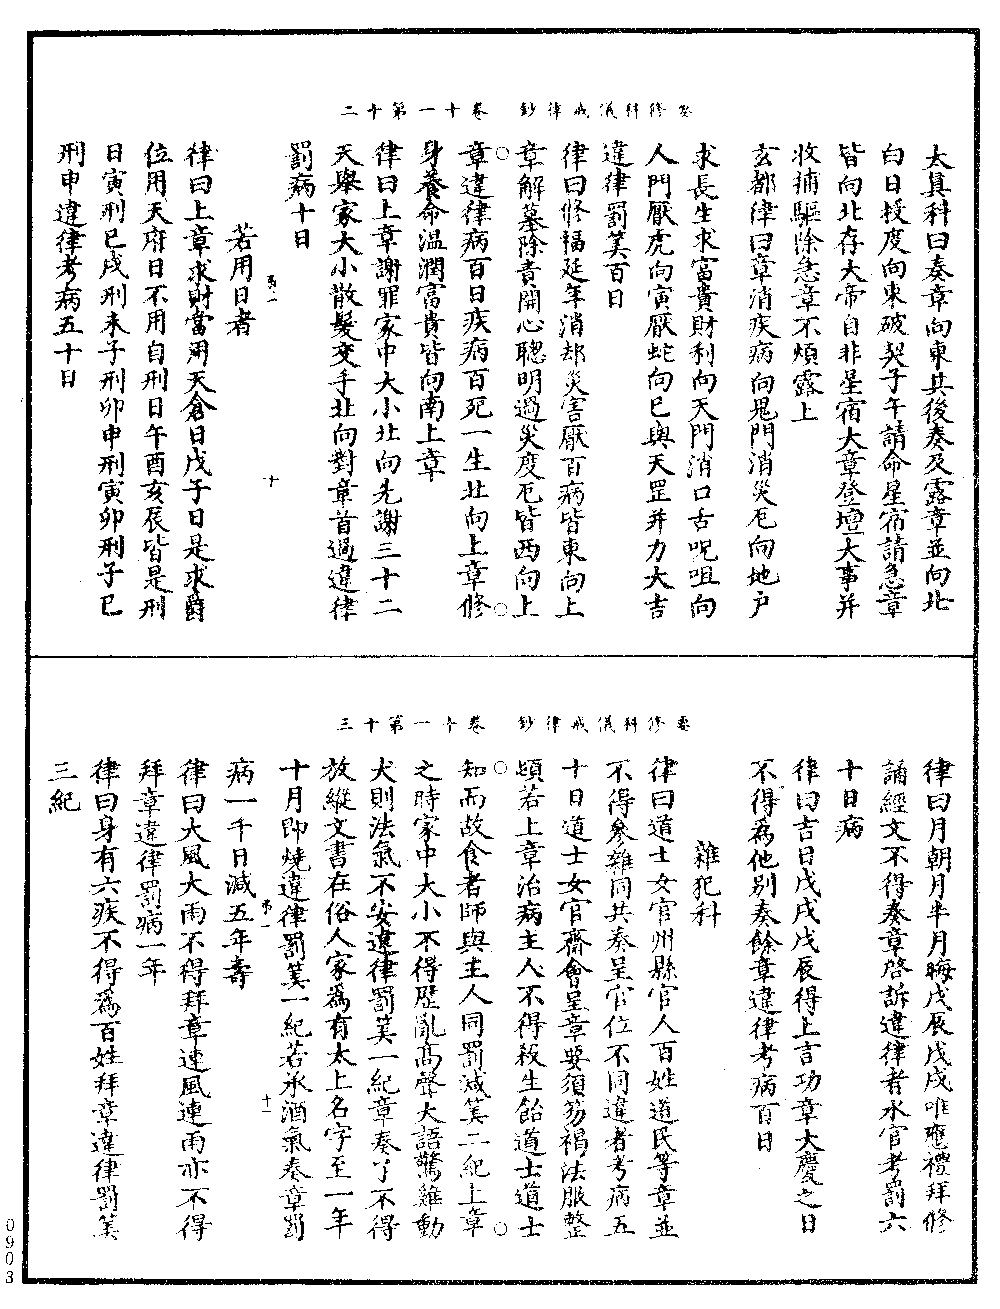 要修科儀戒律鈔　卷十一第十二
太真科曰奏章向東其後奏及露章並向北
白日授度向東破契子午請命星宿請急章
皆向北存大帝自非星宿大章登壇大事并
收捕驅除急章不煩露上
玄都律曰章消疾病向鬼門消災厄向地戶
求長生求富貴財利向天門消口舌呪咀向
人門厭虎向寅厭蛇向巳與天罡并力大吉
違律罰筭百日
律曰修福延年消却災害厭百病皆東向上
章解墓除責開心聰明過災度厄皆西向上
章違律病百日疾病百死一生北向上章修
身養命溫潤富貴皆向南上章
律曰上章謝罪家中大小北向先謝三十二
天舉家大小散髮交手北向對章首過違律
罰病十日
若用日者
律曰上章求財當用天倉日戊子日是求爵
位用天府日不用自刑日午酉亥辰皆是刑
日寅刑巳戌刑未子刑卯申刑寅卯刑子巳
刑申違律考病五十日
十
要修科儀戒律鈔　卷十一第十三
律曰月朝月半月晦戊辰戊戌唯應禮拜修
誦經文不得奏章啓訴違律者水官考罰六
十日病
律曰吉日戊戌戊辰得上言功章大慶之日
不得為他別奏餘章違律考病百日
雜犯科
律曰道士女官州縣官人百姓道民等章並
不得參雜同共奏呈官位不同違者考病五
十日道士女官齋會呈章要須笏褐法服整
頓若上章治病主人不得殺生飴道士道士
知而故食者師與主人同罰減筭二紀上章
之時家中大小不得歷亂高聲大語驚雞動
犬則法氣不安違律罰筭一紀章奏了不得
放縱文書在俗人家為有太上名字至一年
十月即燒違律罰筭一紀若承酒氣奏章罰
病一千日減五年壽
律曰大風大雨不得拜章連風連雨亦不得
拜章違律罰病一年
律曰身有六疾不得為百姓拜章違律罰筭
三紀
十一
0903